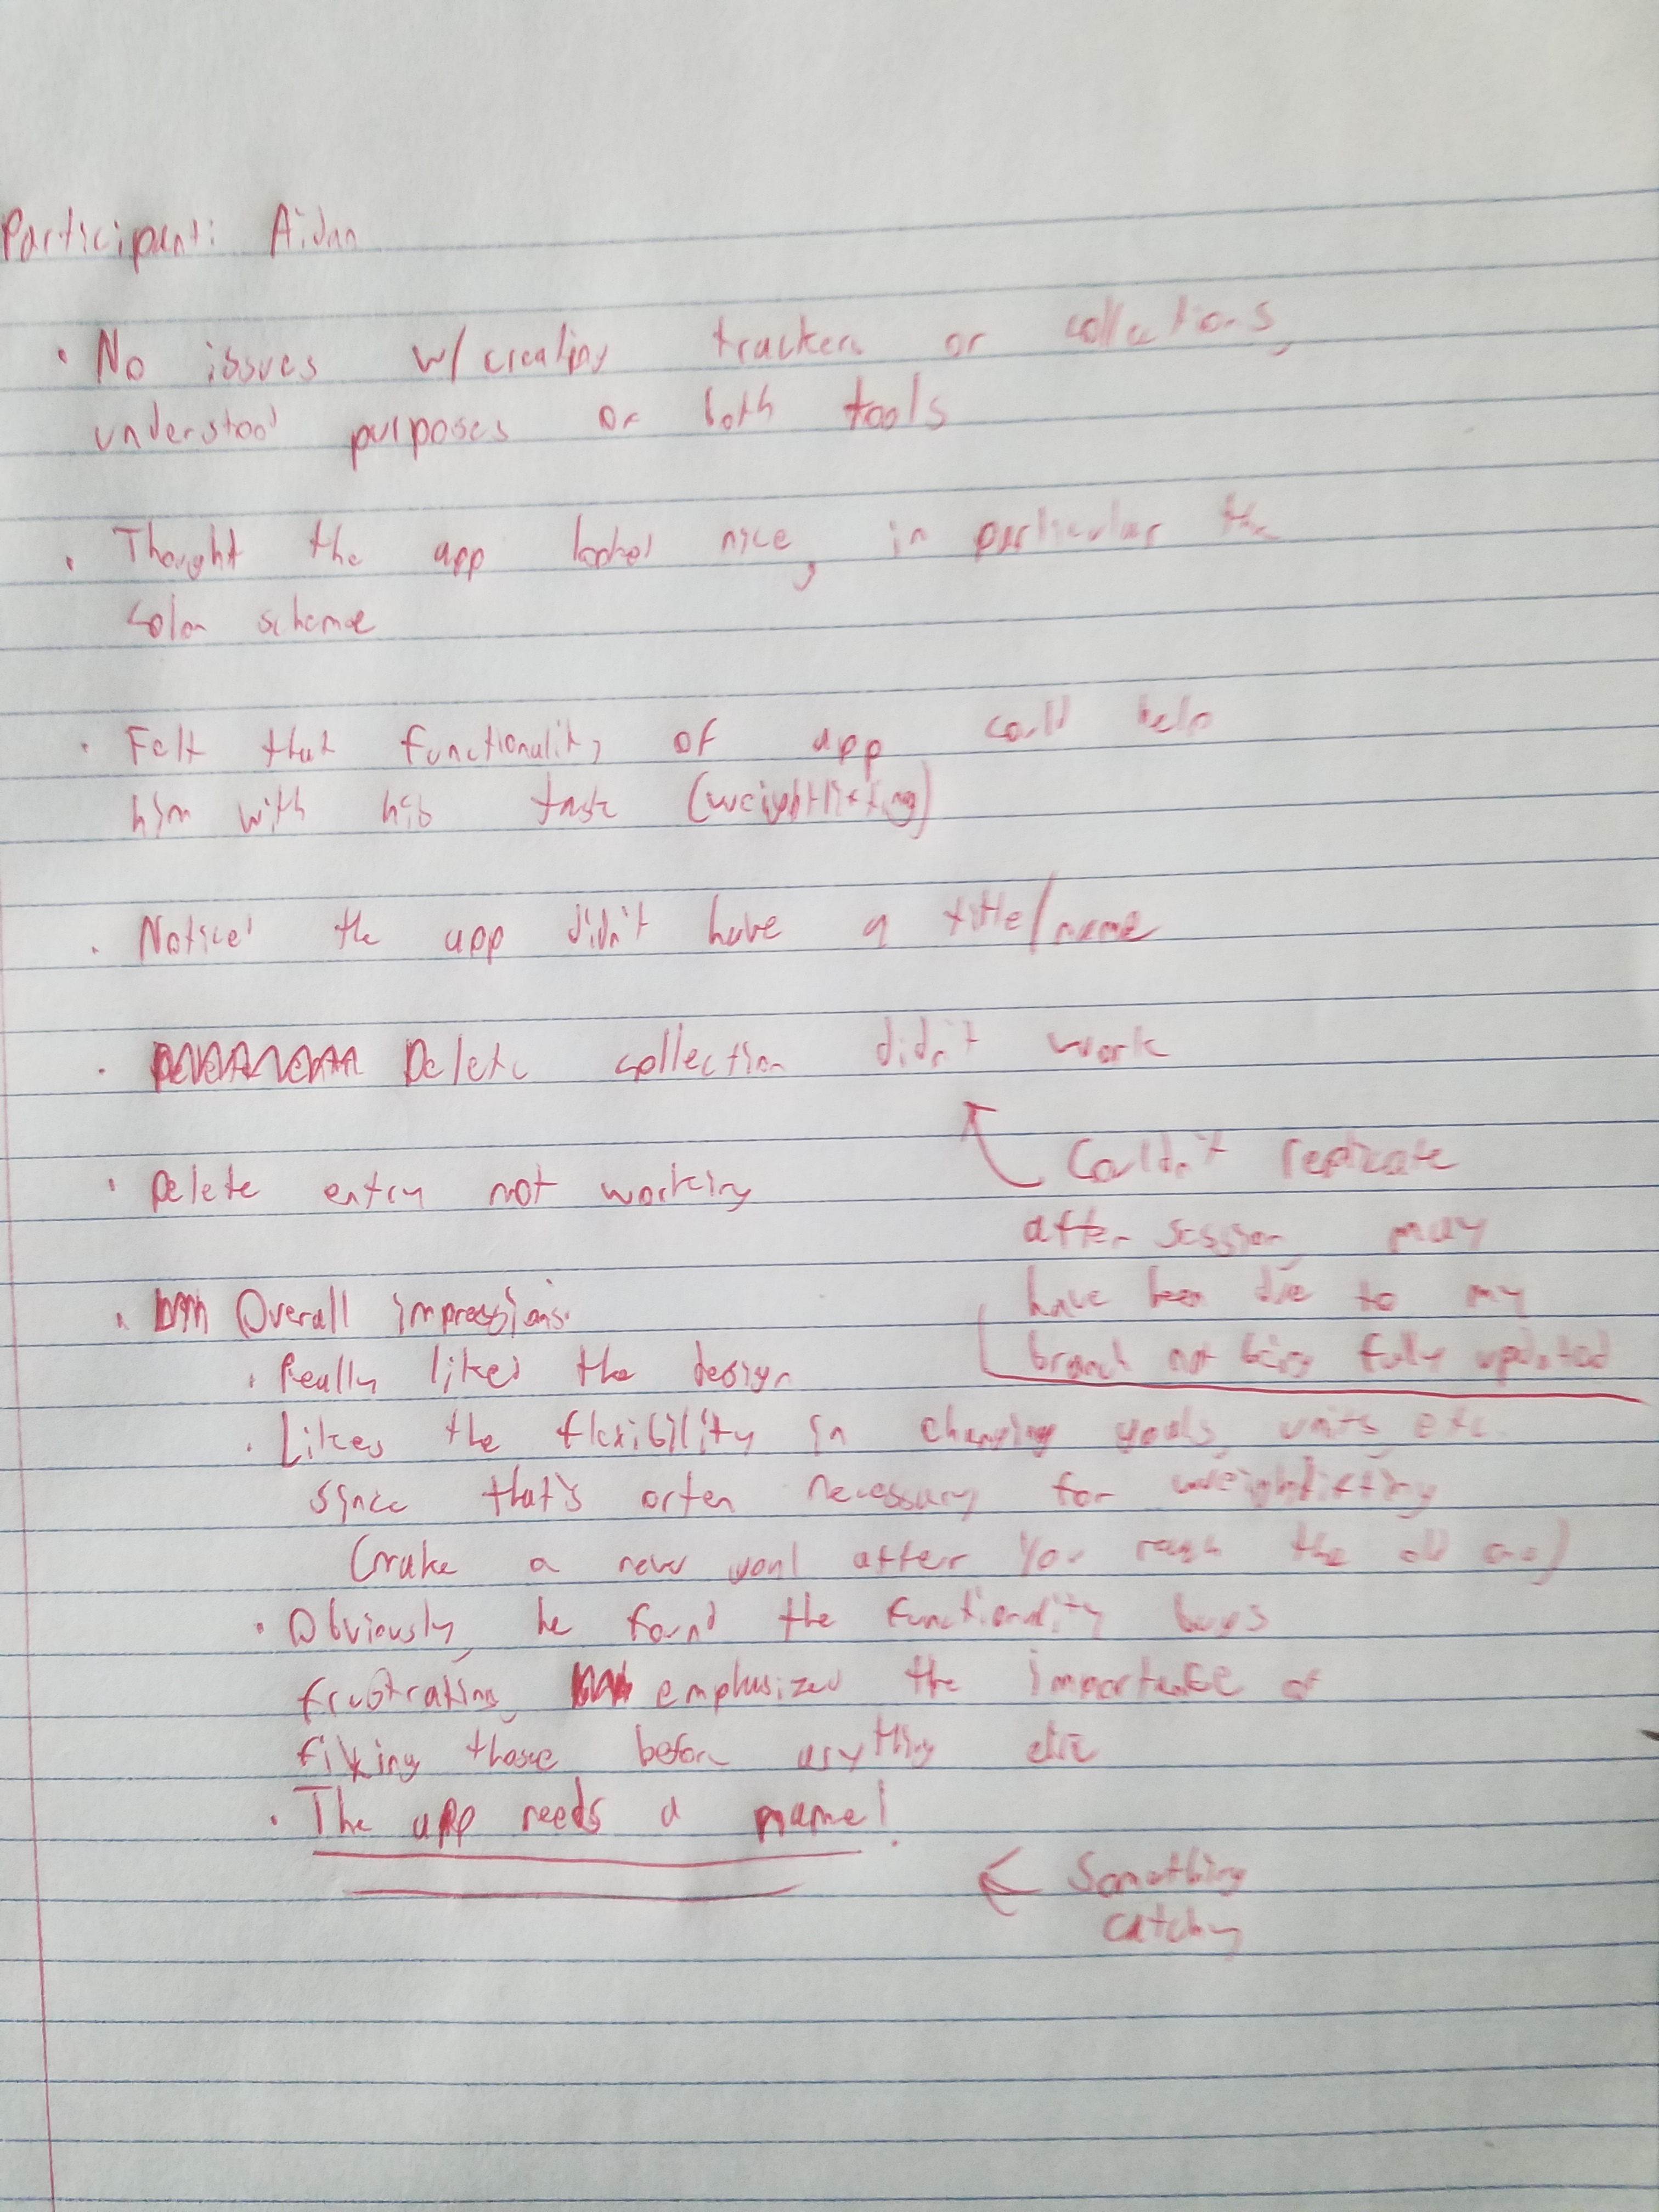 Participant: Aidan
· No issues w/ creating trackers or collections,
understood purposes of both tools
· Thought the app looked nice, in particular the
color scheme
· Felt that functionality of app could help
him with his task (weightlifting)
· Noticed the app didn't have a title/name
· Delete collection didn't work
Couldn't replicate
after session, may
have been due to my
branch not being fully updated
· Delete entry not working
· Overall impressions:
· Really liked the design
· Likes the flexibility in changing goals, units, etc.
since that's often necessary for weightlifting
(make a new goal after you reach the old one)
· Obviously, he found the functionality bugs
frustrating, emphasized the importance of
fixing those before anything else
· The app needs a name!
← Something
catchy